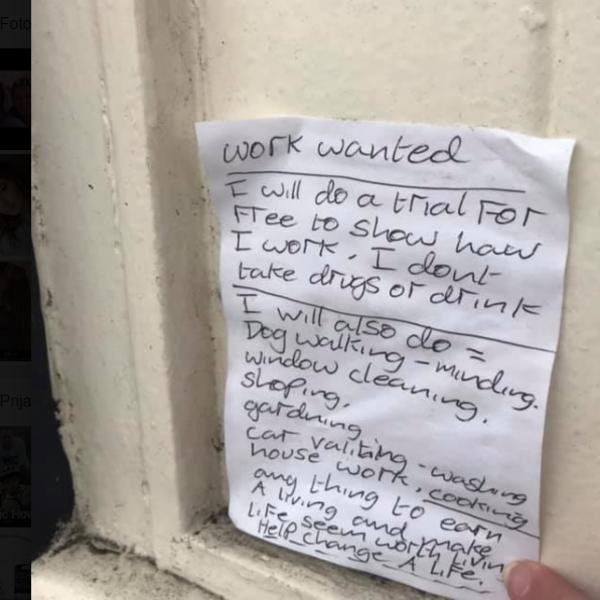 Foto
Prija
work wanted
I will do a trial For
Free to show haw
I work. I dont
take drugs or drink
I will also do =
Dog walking - minding.
window cleaning.
shoping.
gardning
car valiting - washing
house work, cooking
any thing to earn
A living and make
Life seem worth livin
Help change A Life.